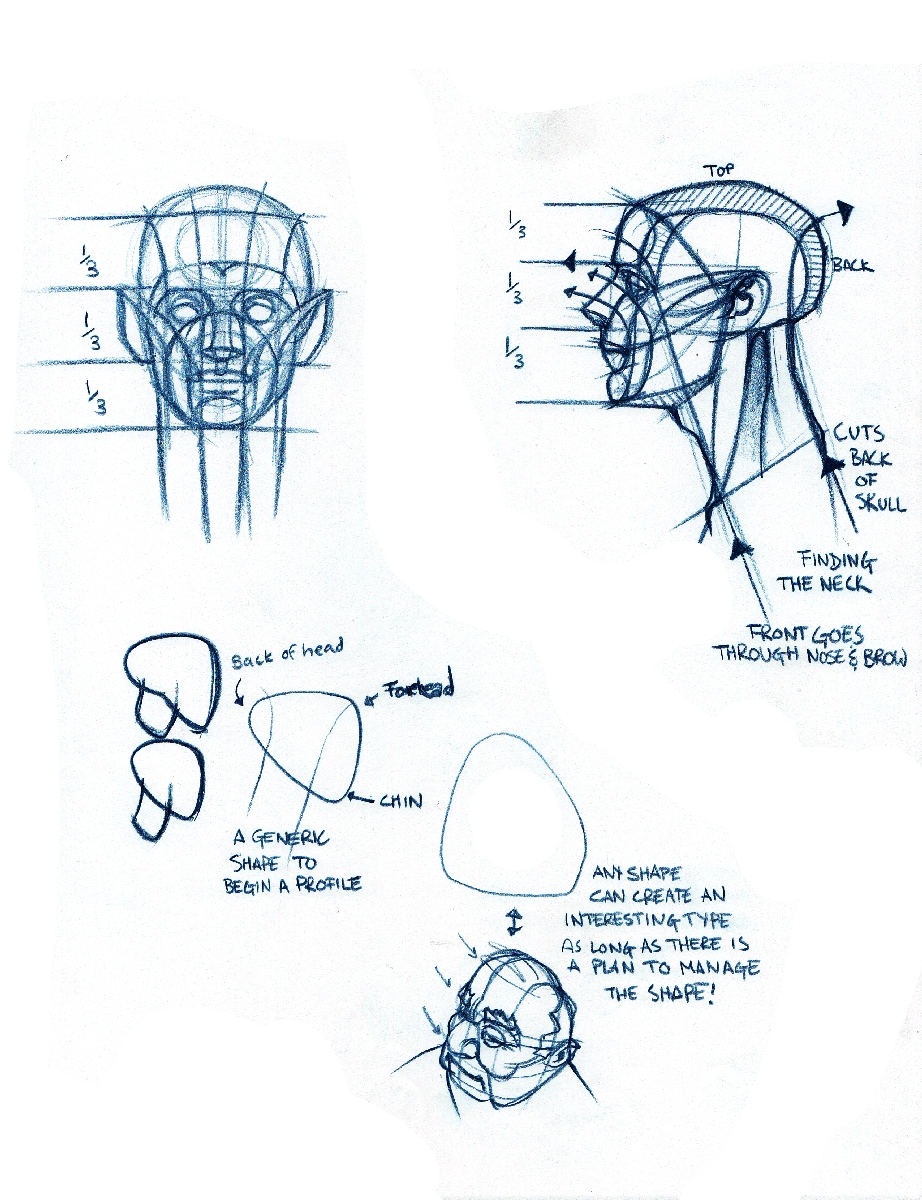 1/3
1/3
1/3
TOP
1/3
1/3
1/3
BACK
CUTS
BACK
OF
SKULL
FINDING
THE NECK
FRONT GOES
THROUGH NOSE & BROW
Back of head
Forehead
CHIN
A GENERIC
SHAPE TO
BEGIN A PROFILE
ANY SHAPE
CAN CREATE AN
INTERESTING TYPE
AS LONG AS THERE IS
A PLAN TO MANAGE
THE SHAPE!